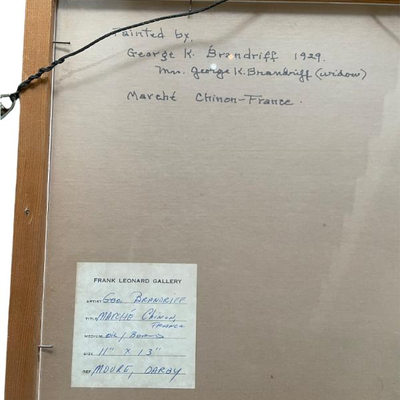 Painted by.
George K. Brandriff 1929.
Mrs. George K. Brandriff (widow)
Marché Chinon-France.
FRANK LEONARD GALLERY
ARTIST Geo. BRANDRIFF
TITLE MARCHÉ CHINON,
FRANCE
MEDIUM OIL / BOARD
SIZE 11" X 13"
REF MOURE, DARBY